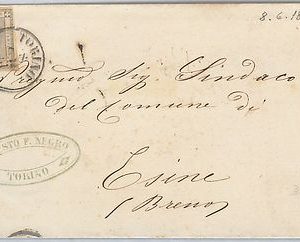 8.6.18
TORINO
Sig Sindaco
del Comune di
STO F. NEGRO
TORINO
Esine
(Breno)